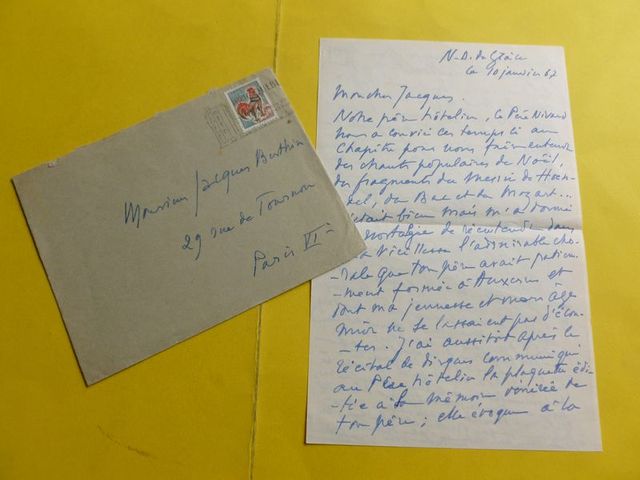 Monsieur Jacques Berthier
29 rue de Tournon
Paris VIe
N.D. du Grâce
le 10 janvier 67
Mon cher Jacques.
Notre père hôtelier, le Père Nivard
nous a convié ces temps ci au
Chapitre pour nous faire entendre
des chants populaires de Noël,
des fragments du Messie de Haen-
del, du Bach et du Mozart...
C'était bien mais m'a donné
nostalgie de réentendre dans
vieillesse l'admirable cho-
-rale que ton père avait patiem-
-ment formée à Auxerre et
dont ma jeunesse et mon âge
mûr ne se lassaient pas d'écou-
-ter. J'ai aussitôt après le
récital de disques communiqué
au Père hôtelier la plaquette édi-
-tée à la mémoire vénérée de
ton père; elle évoque à la